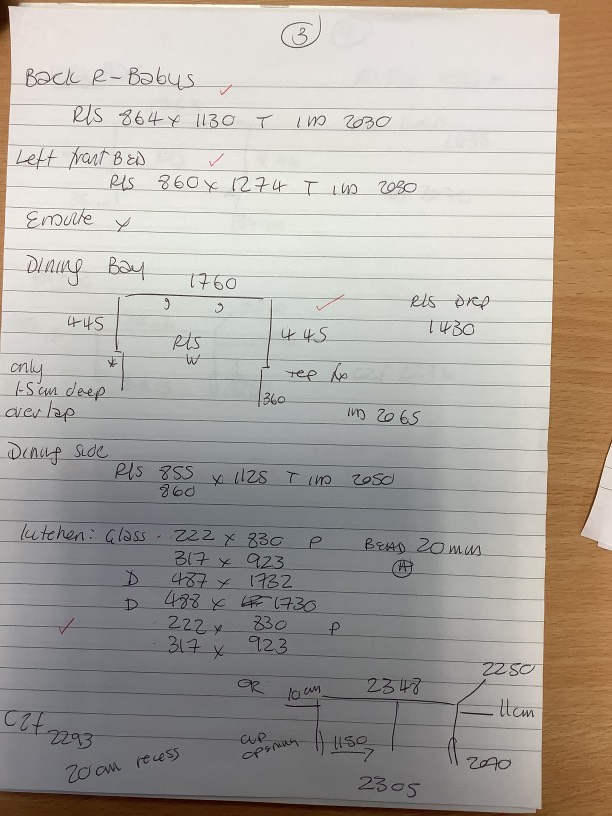 3
Back R-Babys
R/S 864 x 1130 T IND 2030
Left front BED
R/S 860 x 1274 T IND 2080
Ensuite x
Dining Bay
1760
R/S Drop
1430
445
R/S
W
445
only
1-5cm deep
overlap
*
360
IND 2065
Dining side
R/S 855 x 1125 T IND 2050
860
kitchen: Glass. 222 x 830 P BEAD 20mm
317 x 923 A
D 487 x 1732
D 488 x 1730
222 x 830 P
317 x 923
OR 10cm 2348 2250
11cm
C2f 2293
20cm recess
cup
opening
1150
2305
2090